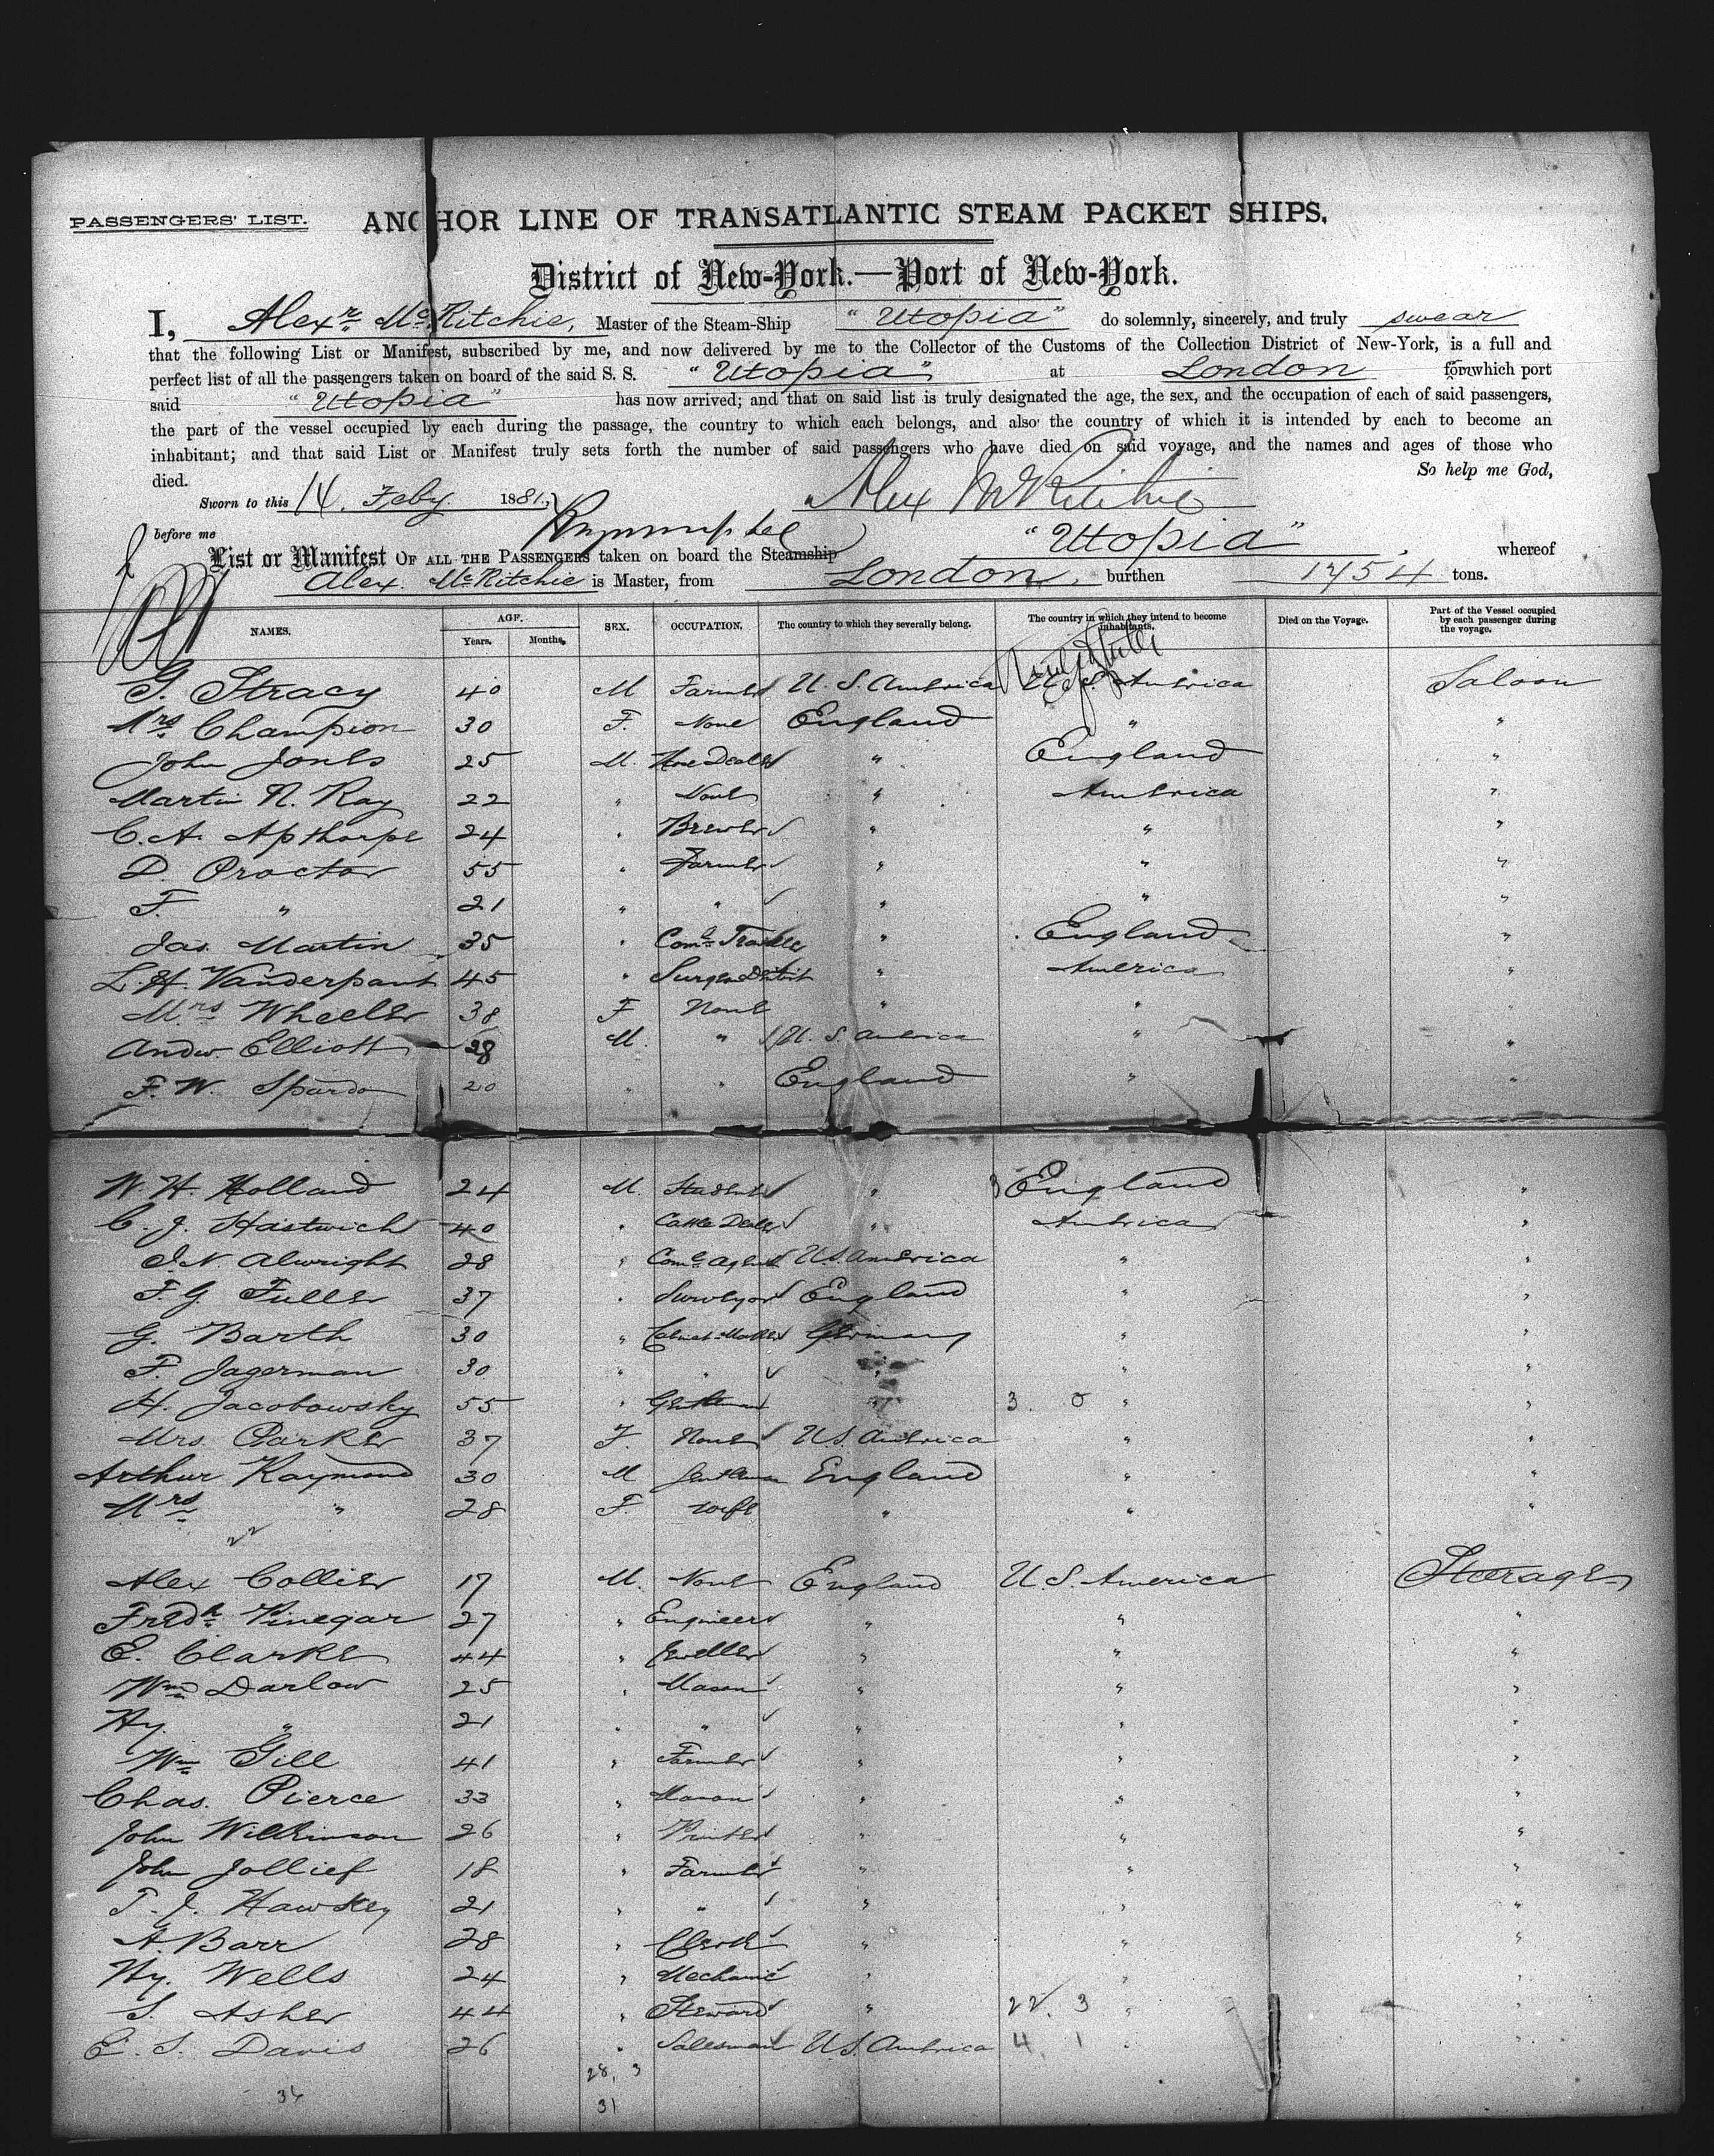 PASSENGERS' LIST.
ANCHOR LINE OF TRANSATLANTIC STEAM PACKET SHIPS.
District of New-York.—Port of New-York.
I, Alexr. McRitchie, Master of the Steam-Ship "Utopia" do solemnly, sincerely, and truly swear
that the following List or Manifest, subscribed by me, and now delivered by me to the Collector of the Customs of the Collection District of New-York, is a full and
perfect list of all the passengers taken on board of the said S. S. "Utopia" at London from which port
said "Utopia" has now arrived; and that on said list is truly designated the age, the sex, and the occupation of each of said passengers,
the part of the vessel occupied by each during the passage, the country to which each belongs, and also the country of which it is intended by each to become an
inhabitant; and that said List or Manifest truly sets forth the number of said passengers who have died on said voyage, and the names and ages of those who
died. So help me God,
Sworn to this 14. Feby. 1881. Alex McRitchie
before me
List or Manifest OF ALL THE PASSENGERS taken on board the Steamship "Utopia" whereof
Alex. McRitchie is Master, from London, burthen 1754 tons.
NAMES. AGE. Years. Months. SEX. OCCUPATION. The country to which they severally belong. The country in which they intend to become inhabitants. Died on the Voyage. Part of the Vessel occupied by each passenger during the voyage.
G. Stracy 40 M Farmer U. S. America U. S. America Saloon
Mrs Champion 30 F. None England " "
John Jones 25 M. Dealer " England "
Martin N. Ray 22 " None " America "
C. A. Apthorpe 24 " Brewer " " "
D. Proctor 55 " Farmer " " "
F. " 21 " " " " "
Jas. Martin 35 " Coml. Traveller " England "
L. H. Vanderpant 45 " Surgeon Dentist " America "
Mrs Wheeler 38 F None " " "
Andw. Elliott 28 M. " U. S. America " "
F. W. 20 " " England " "
W. H. Holland 24 M. Student " England "
C. J. Hastwich 40 " Cattle Dealer " America "
J. N. Alwright 28 " Coml. Agent U.S. America " "
F. G. Fuller 37 " Surveyor England " "
G. Barth 30 " Cabinet Maker Germany " "
F. Jagerman 30 " " " " "
H. Jacobowsky 55 " Gentleman " 3 0 " "
Mrs Parker 37 F. None U.S. America " "
Arthur Raymond 30 M Gentleman England " "
Mrs " 28 F. Wife " " "
22
Alex Collier 17 M. None England U.S. America Steerage
Fredk. Pinegar 27 " Engineer " " "
E. Clarke 44 " Jeweller " " "
Wm Darlow 25 " Mason " " "
Hy. " 21 " " " " "
Wm Gill 41 " Farmer " " "
Chas. Pierce 33 " Mason " " "
John Wilkinson 26 " Printer " " "
John Jollief 18 " Farmer " " "
T. J. Hawkey 21 " " " " "
A. Barr 28 " Clerk " " "
Hy. Wells 24 " Mechanic " " "
S. Asher 44 " Steward " 22. 3 " "
E. S. Davis 26 " Salesman U.S. America 4. 1 " "
28, 3
31